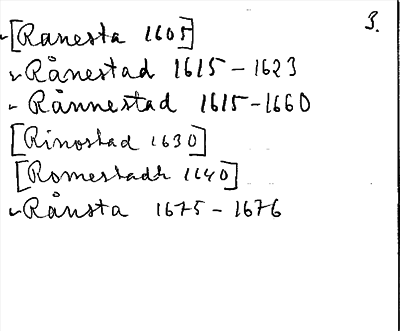 3.
[Ranesta 1605]
Rånestad 1615-1623
Rånnestad 1615-1660
[Rinostad 1630]
[Romestadh 1640]
Rånsta 1675-1676